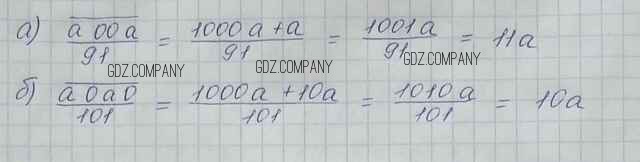 а) a00a/91 = 1000a+a/91 = 1001a/91 = 11a
GDZ.COMPANY GDZ.COMPANY GDZ.COMPANY
б) a0a0/101 = 1000a+10a/101 = 1010a/101 = 10a